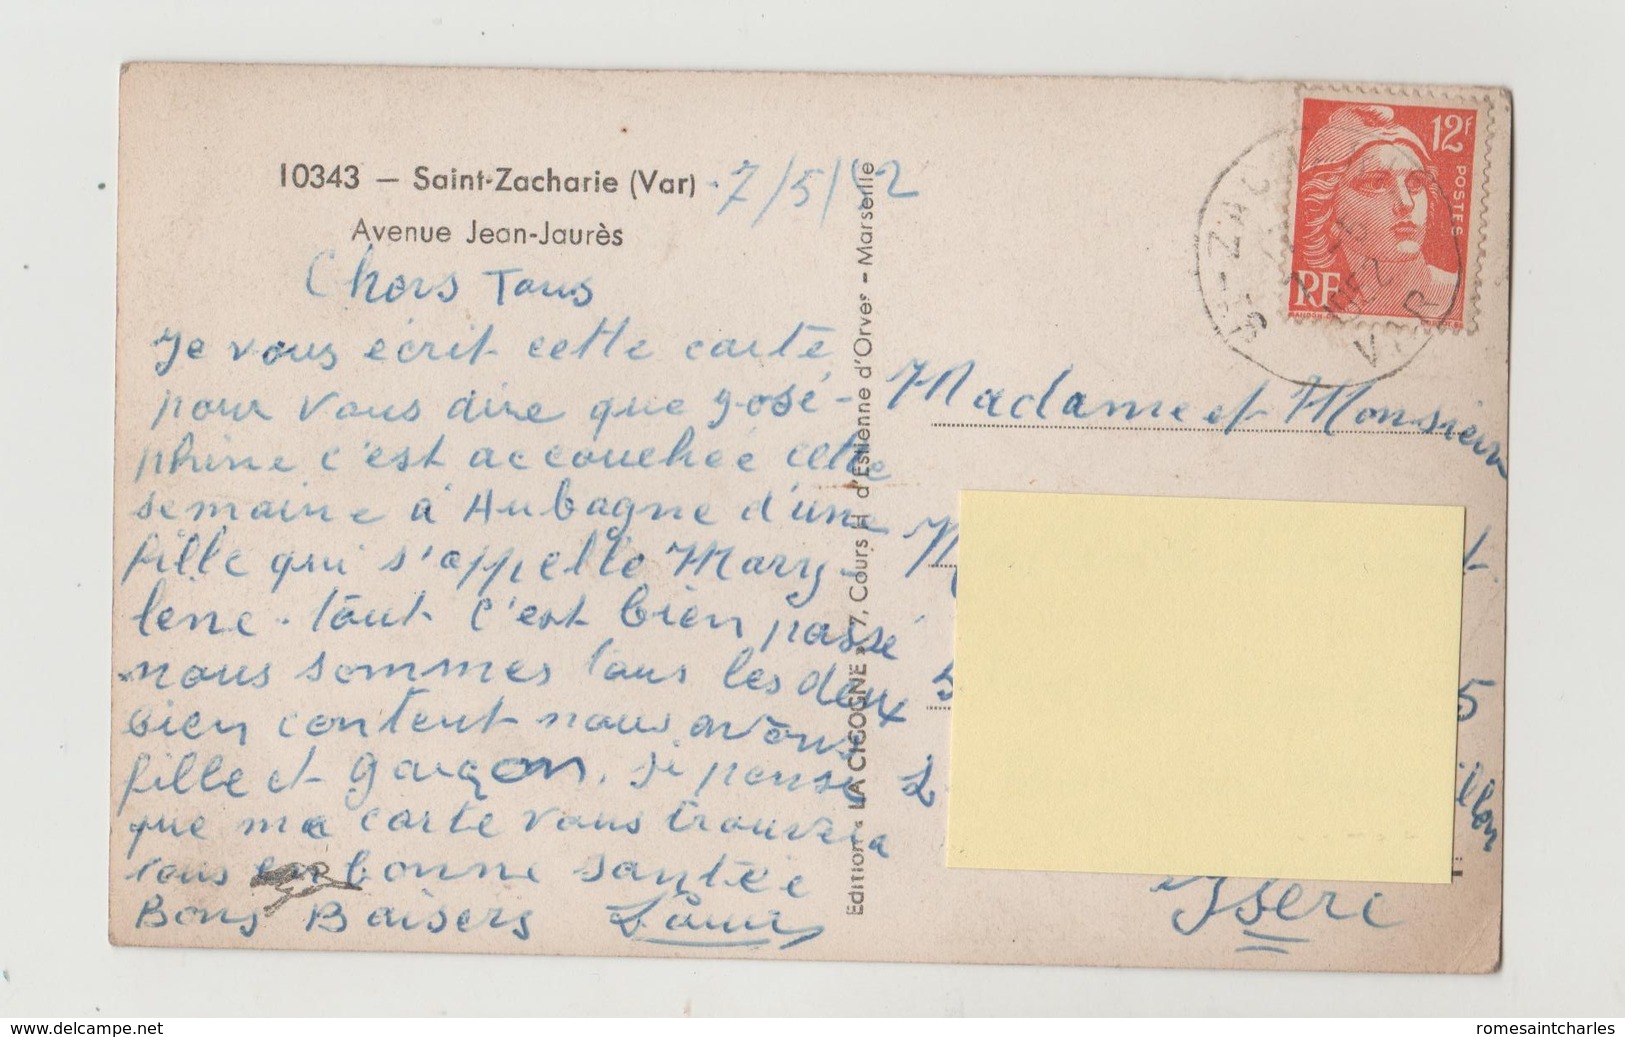 10343 — Saint-Zacharie (Var)
Avenue Jean-Jaurès
7/5/52
Chors Tous
Je vous écrit cette carte
pour vous dire que José-
phine c'est accouchée cette
semaine à Aubagne d'une
fille qui s'appelle Mary-
lene. tout c'est bien passé
nous sommes tous les deux
bien content nous avons
fille et garçon. je pense
que ma carte vous trouvera
tous en bonne santée
Bons Baisers Louis
Edition « LA CIGOGNE » 7, Cours H d'Estienne d'Orves - Marseille
12f
POSTES
RF
ST-ZACHARIE
VAR
Madame et Monsieur
M
5
5
illon
Isere
www.delcampe.net
romesaintcharles